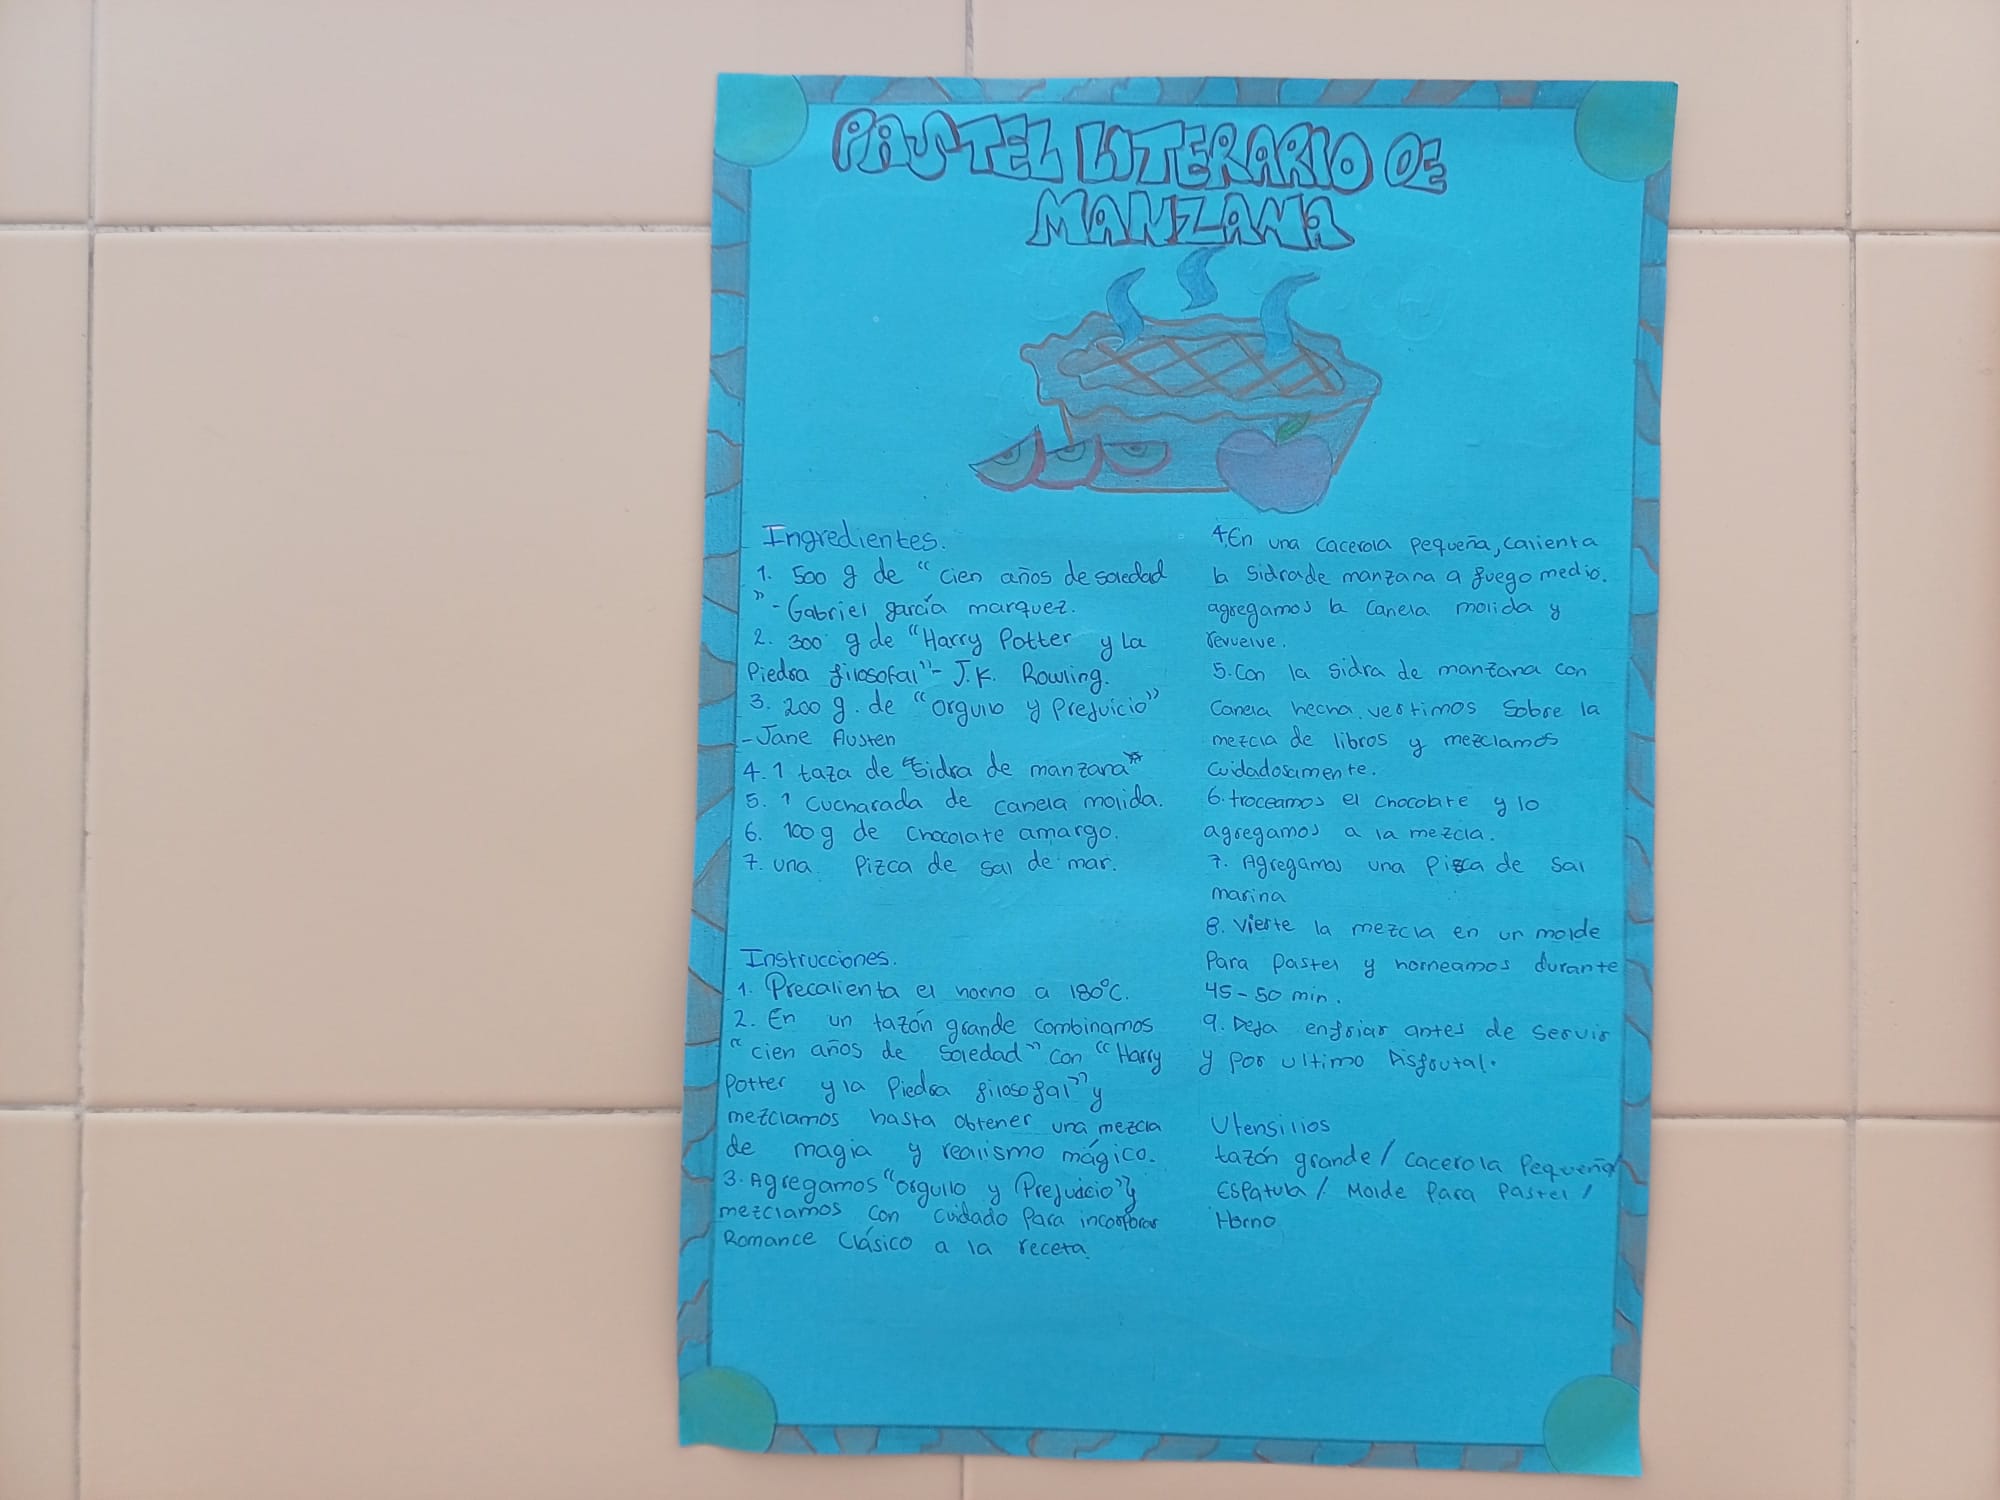 PASTEL LITERARIO DE
MANZANA
Ingredientes.
1. 500 g de "cien años de soledad
"-Gabriel garcía marquez.
2. 300 g de "Harry Potter y la
Piedra filosofal"- J.K. Rowling.
3. 200 g. de "orgullo y Prejuicio"
-Jane Austen
4. 1 taza de "sidra de manzana"
5. 1 cucharada de canela molida.
6. 100g de chocolate amargo.
7. una pizca de sal de mar.
Instrucciones.
1. Precalienta el horno a 180°C.
2. En un tazón grande combinamos
"cien años de soledad" con "Harry
Potter y la Piedra filosofal" y
mezclamos hasta obtener una mezcla
de magia y realismo mágico.
3. Agregamos "orgullo y Prejuicio" y
mezclamos con cuidado para incorporar
Romance clásico a la receta.
4. En una cacerola pequeña, calienta
la sidra de manzana a fuego medio.
agregamos la canela molida y
revuelve.
5. Con la sidra de manzana con
canela hecha. vertimos sobre la
mezcla de libros y mezclamos
cuidadosamente.
6. troceamos el chocolate y lo
agregamos a la mezcla.
7. Agregamos una pizca de sal
marina
8. vierte la mezcla en un molde
Para pastel y horneamos durante
45-50 min.
9. Deja enfriar antes de servir
y por ultimo Disfruta!.
Utensilios
tazón grande / cacerola Pequeña
Espatula / Molde Para Pastel /
Horno